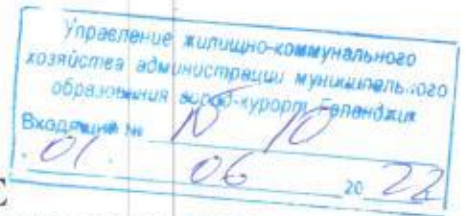 Управление жилищно-коммунального
хозяйства администрации муниципального
образования город-курорт Геленджик
Входящий № N 10
01. 06 20 22
С